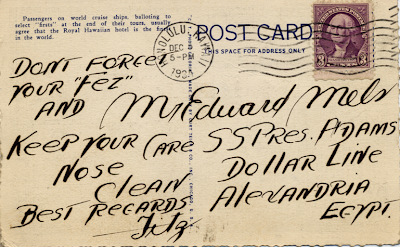 Passengers on world cruise ships, balloting to
select "firsts" at the end of their tours, usually
agree that the Royal Hawaiian hotel is the finest
in the world.
POST CARD
THIS SPACE FOR ADDRESS ONLY
HONOLULU, HAWAII
DEC
5-PM
UNITED STATES POSTAGE
3 3
DONT FORGET
YOUR "FEZ"
AND
KEEP YOUR CARE
NOSE
CLEAN
BEST REGARDS
Fitz
Mr Edward Mels
SS PRES. ADAMS
DOLLAR LINE
ALEXANDRIA
EGYPT.